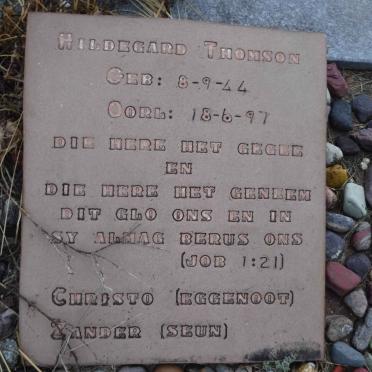 HILDEGARD THOMSON
GEB: 8-9-44
OORL: 18-6-97
DIE HERE HET GEGEE
EN
DIE HERE HET GENEEM
DIT GLO ONS EN IN
SY ALMAG BERUS ONS
(JOB 1:21)
CHRISTO (EGGENOOT)
XANDER (SEUN)